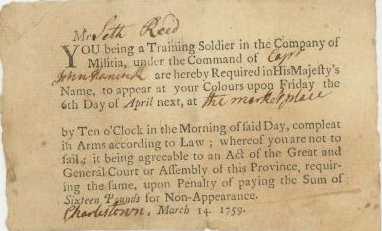 Mr Seth Reed
YOU being a Training Soldier in the Company of
Militia, under the Command of Capt
John Hancock are hereby Required in His Majesty's
Name, to appear at your Colours upon Friday the
6th Day of April next, at the market place
by Ten o'Clock in the Morning of said Day, compleat
in Arms according to Law ; whereof you are not to
fail ; it being agreeable to an Act of the Great and
General Court or Assembly of this Province, requir-
ing the same, upon Penalty of paying the Sum of
Sixteen Pounds for Non-Appearance.
Charlestown, March 14. 1759.